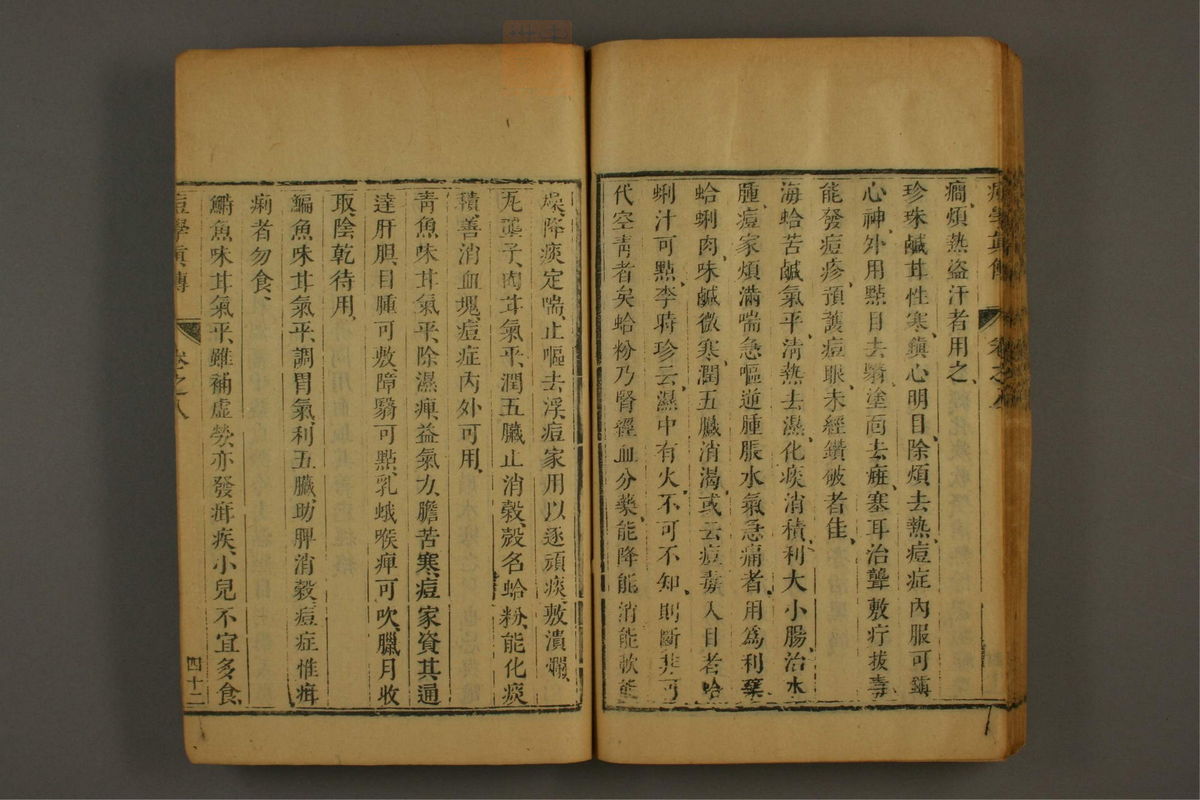 痘學真傳　卷之八
癎、煩熱盜汗者用之、
珍珠鹹甘性寒、鎭心明目、除煩去熱、痘症內服可鎭
心神、外用點目去翳、塗面去䵟、塞耳治聾、敷疔拔毒、
能發痘疹、預護痘眼、未經鑽破者佳、
海蛤苦鹹氣平、淸熱去濕、化痰消積、利大小腸、治水
腫、痘家煩滿喘急、嘔逆腫脹、水氣急痛者、用爲利藥、
蛤蜊肉、味鹹微寒、潤五臟消渴、或云痘毒入目者、蛤
蜊汁可點、李時珍云、濕中有火、不可不知、則斷
代空靑者矣、蛤粉乃腎經血分藥、能降能消能軟能
燥、降痰定喘、止嘔去浮、痘家用以逐頑痰、敷潰爛、
子、肉甘氣平、潤五臟、止消穀、殼名蛤粉、能化痰
積、善消血塊、痘症內外可用、
靑魚味甘氣平、除濕痺、益氣力、膽苦寒、痘家資其通
達肝胆、目腫可敷、障翳可點、乳蛾喉痺可吹、臘月收
取、陰乾待用、
鯿魚味甘氣平、調胃氣、利五臟、助脾消穀、痘症惟疳
痢者勿食、
鰤魚味甘氣平、雖補虛勞、亦發疳疾、小兒不宜多食、
痘學眞傳　卷之八　四十二